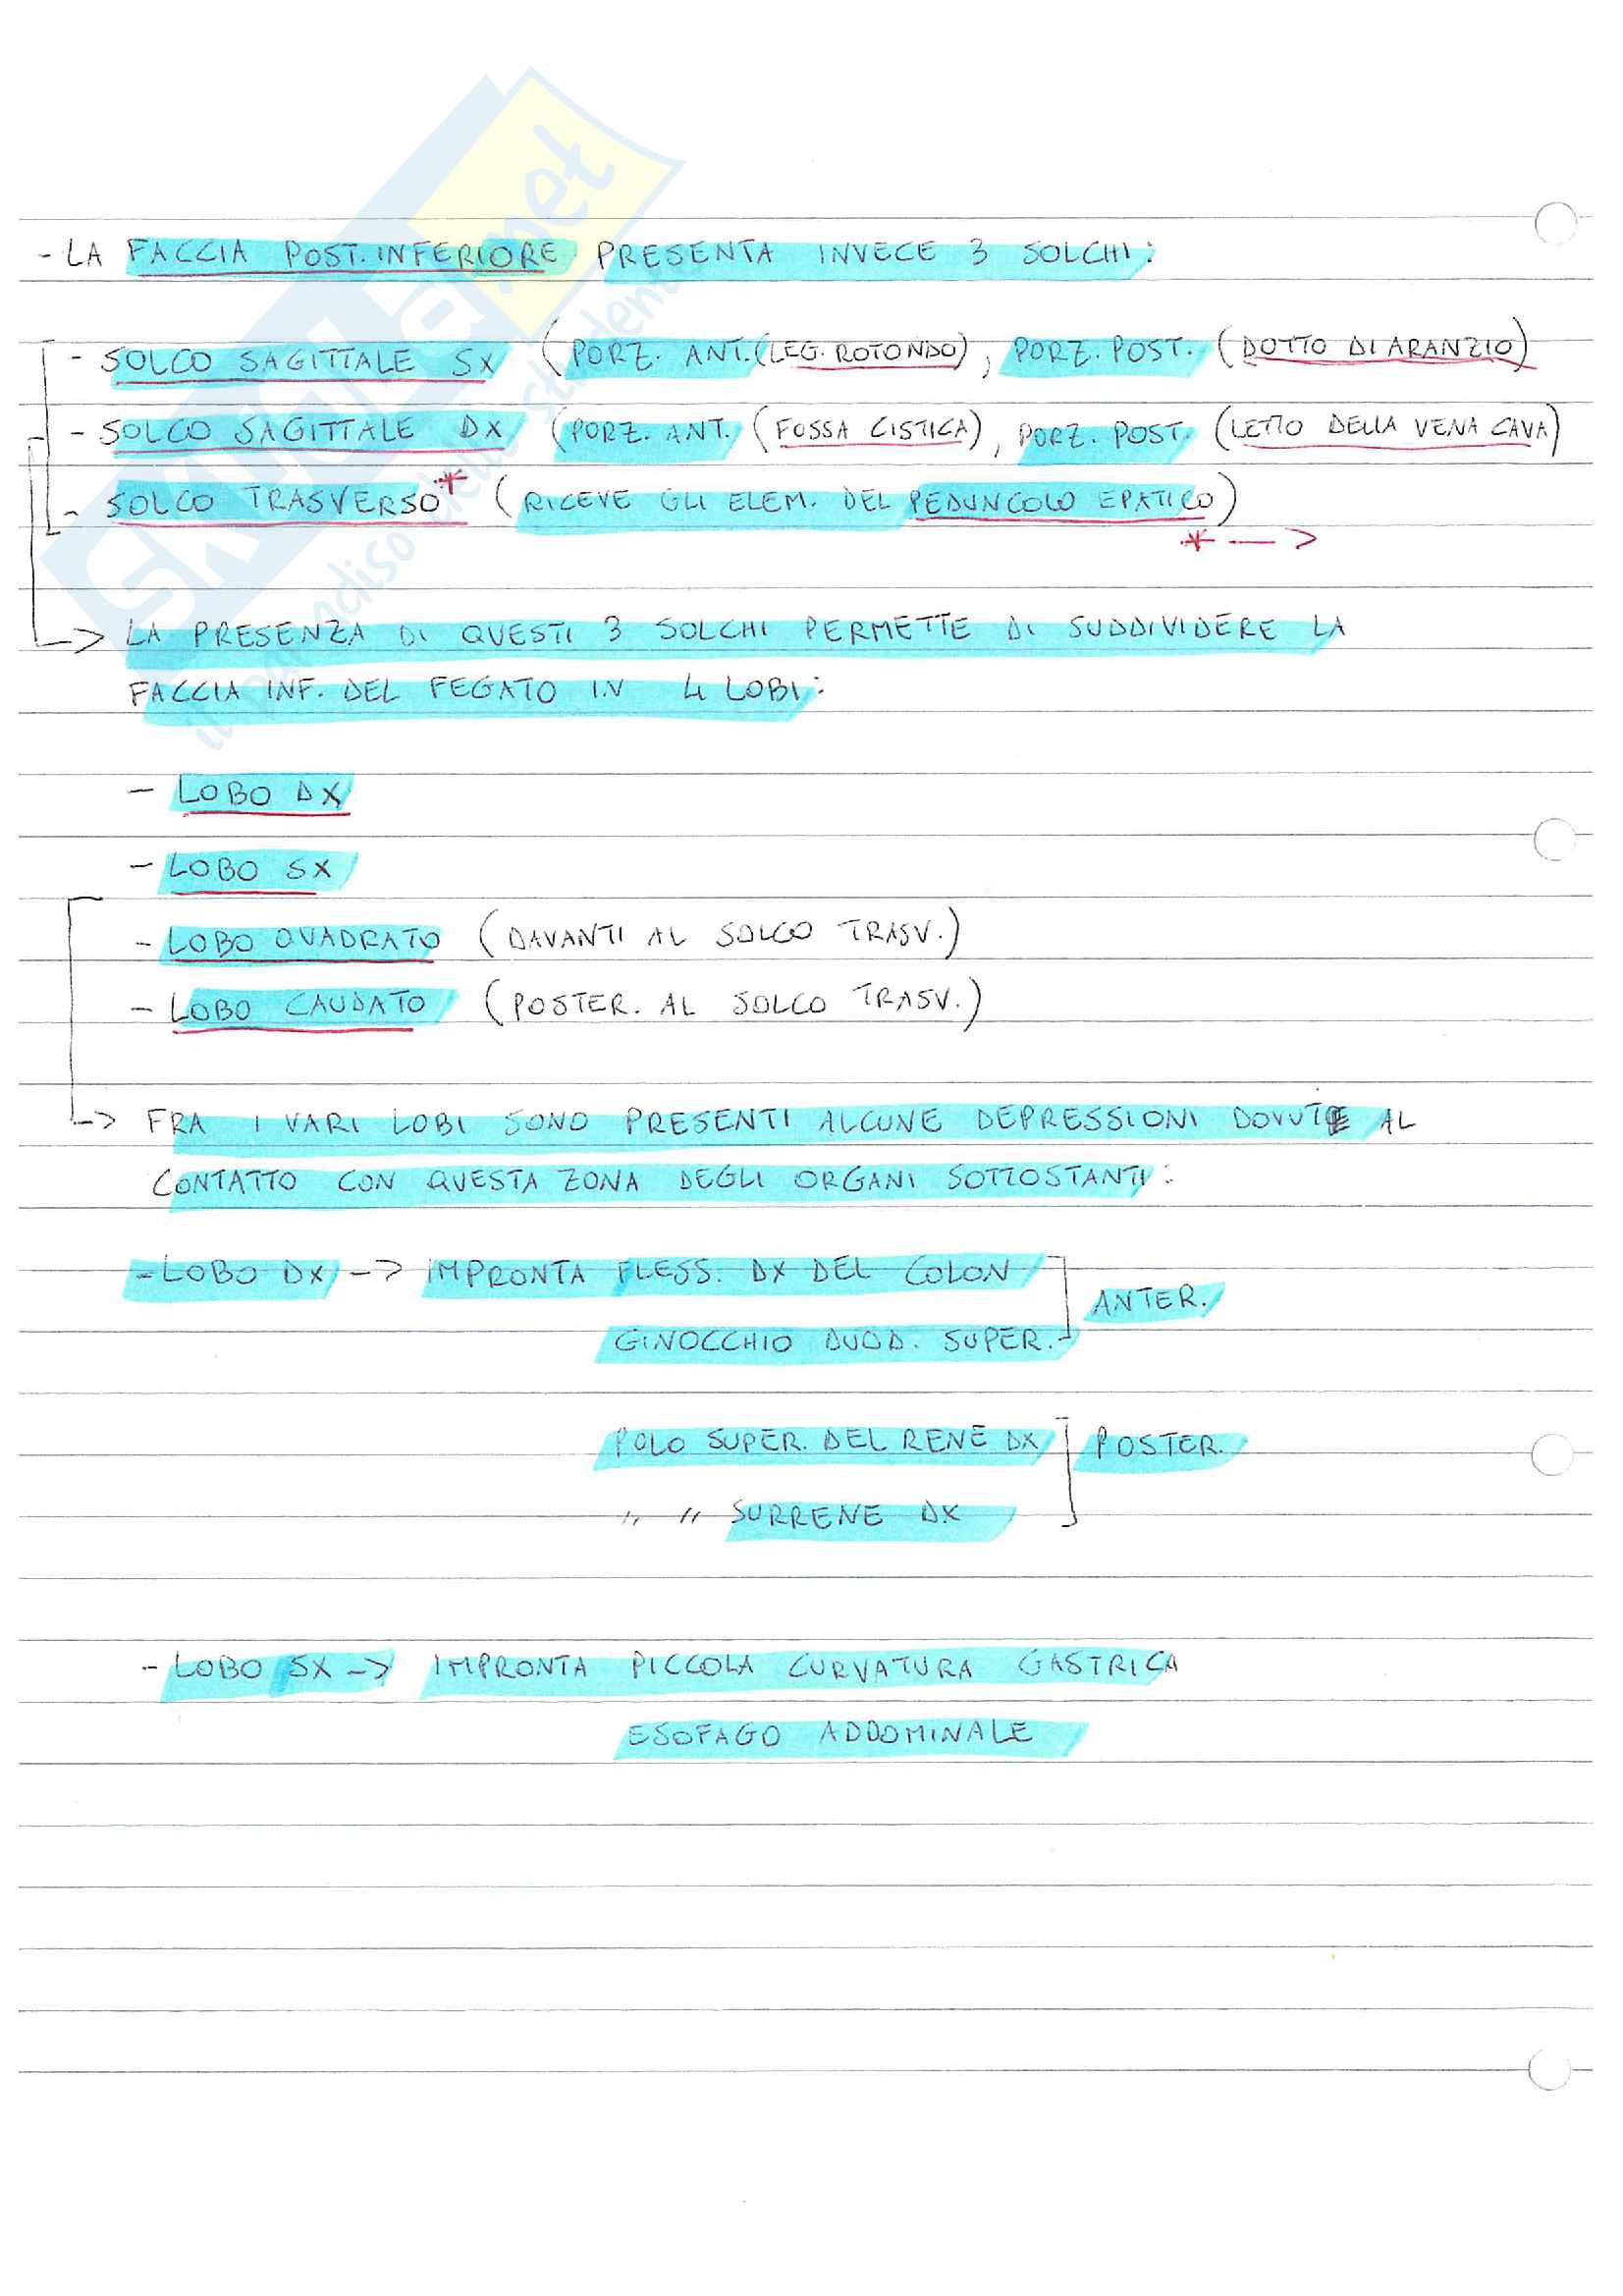 - LA FACCIA POST. INFERIORE PRESENTA INVECE 3 SOLCHI:
- SOLCO SAGITTALE SX (PORZ. ANT. (LEG. ROTONDO), PORZ. POST. (DOTTO DI ARANZIO)
- SOLCO SAGITTALE DX (PORZ. ANT. (FOSSA CISTICA), PORZ. POST. (LETTO DELLA VENA CAVA)
- SOLCO TRASVERSO* (RICEVE GLI ELEM. DEL PEDUNCOLO EPATICO)
* - - >
-> LA PRESENZA DI QUESTI 3 SOLCHI PERMETTE DI SUDDIVIDERE LA
FACCIA INF. DEL FEGATO IN 4 LOBI:
- LOBO DX
- LOBO SX
- LOBO QUADRATO (DAVANTI AL SOLCO TRASV.)
- LOBO CAUDATO (POSTER. AL SOLCO TRASV.)
-> FRA I VARI LOBI SONO PRESENTI ALCUNE DEPRESSIONI DOVUTE AL
CONTATTO CON QUESTA ZONA DEGLI ORGANI SOTTOSTANTI:
- LOBO DX -> IMPRONTA FLESS. DX DEL COLON
ANTER.
GINOCCHIO DUOD. SUPER.
POLO SUPER. DEL RENE DX POSTER.
" " SURRENE DX
- LOBO SX -> IMPRONTA PICCOLA CURVATURA GASTRICA
ESOFAGO ADDOMINALE
skuola.net